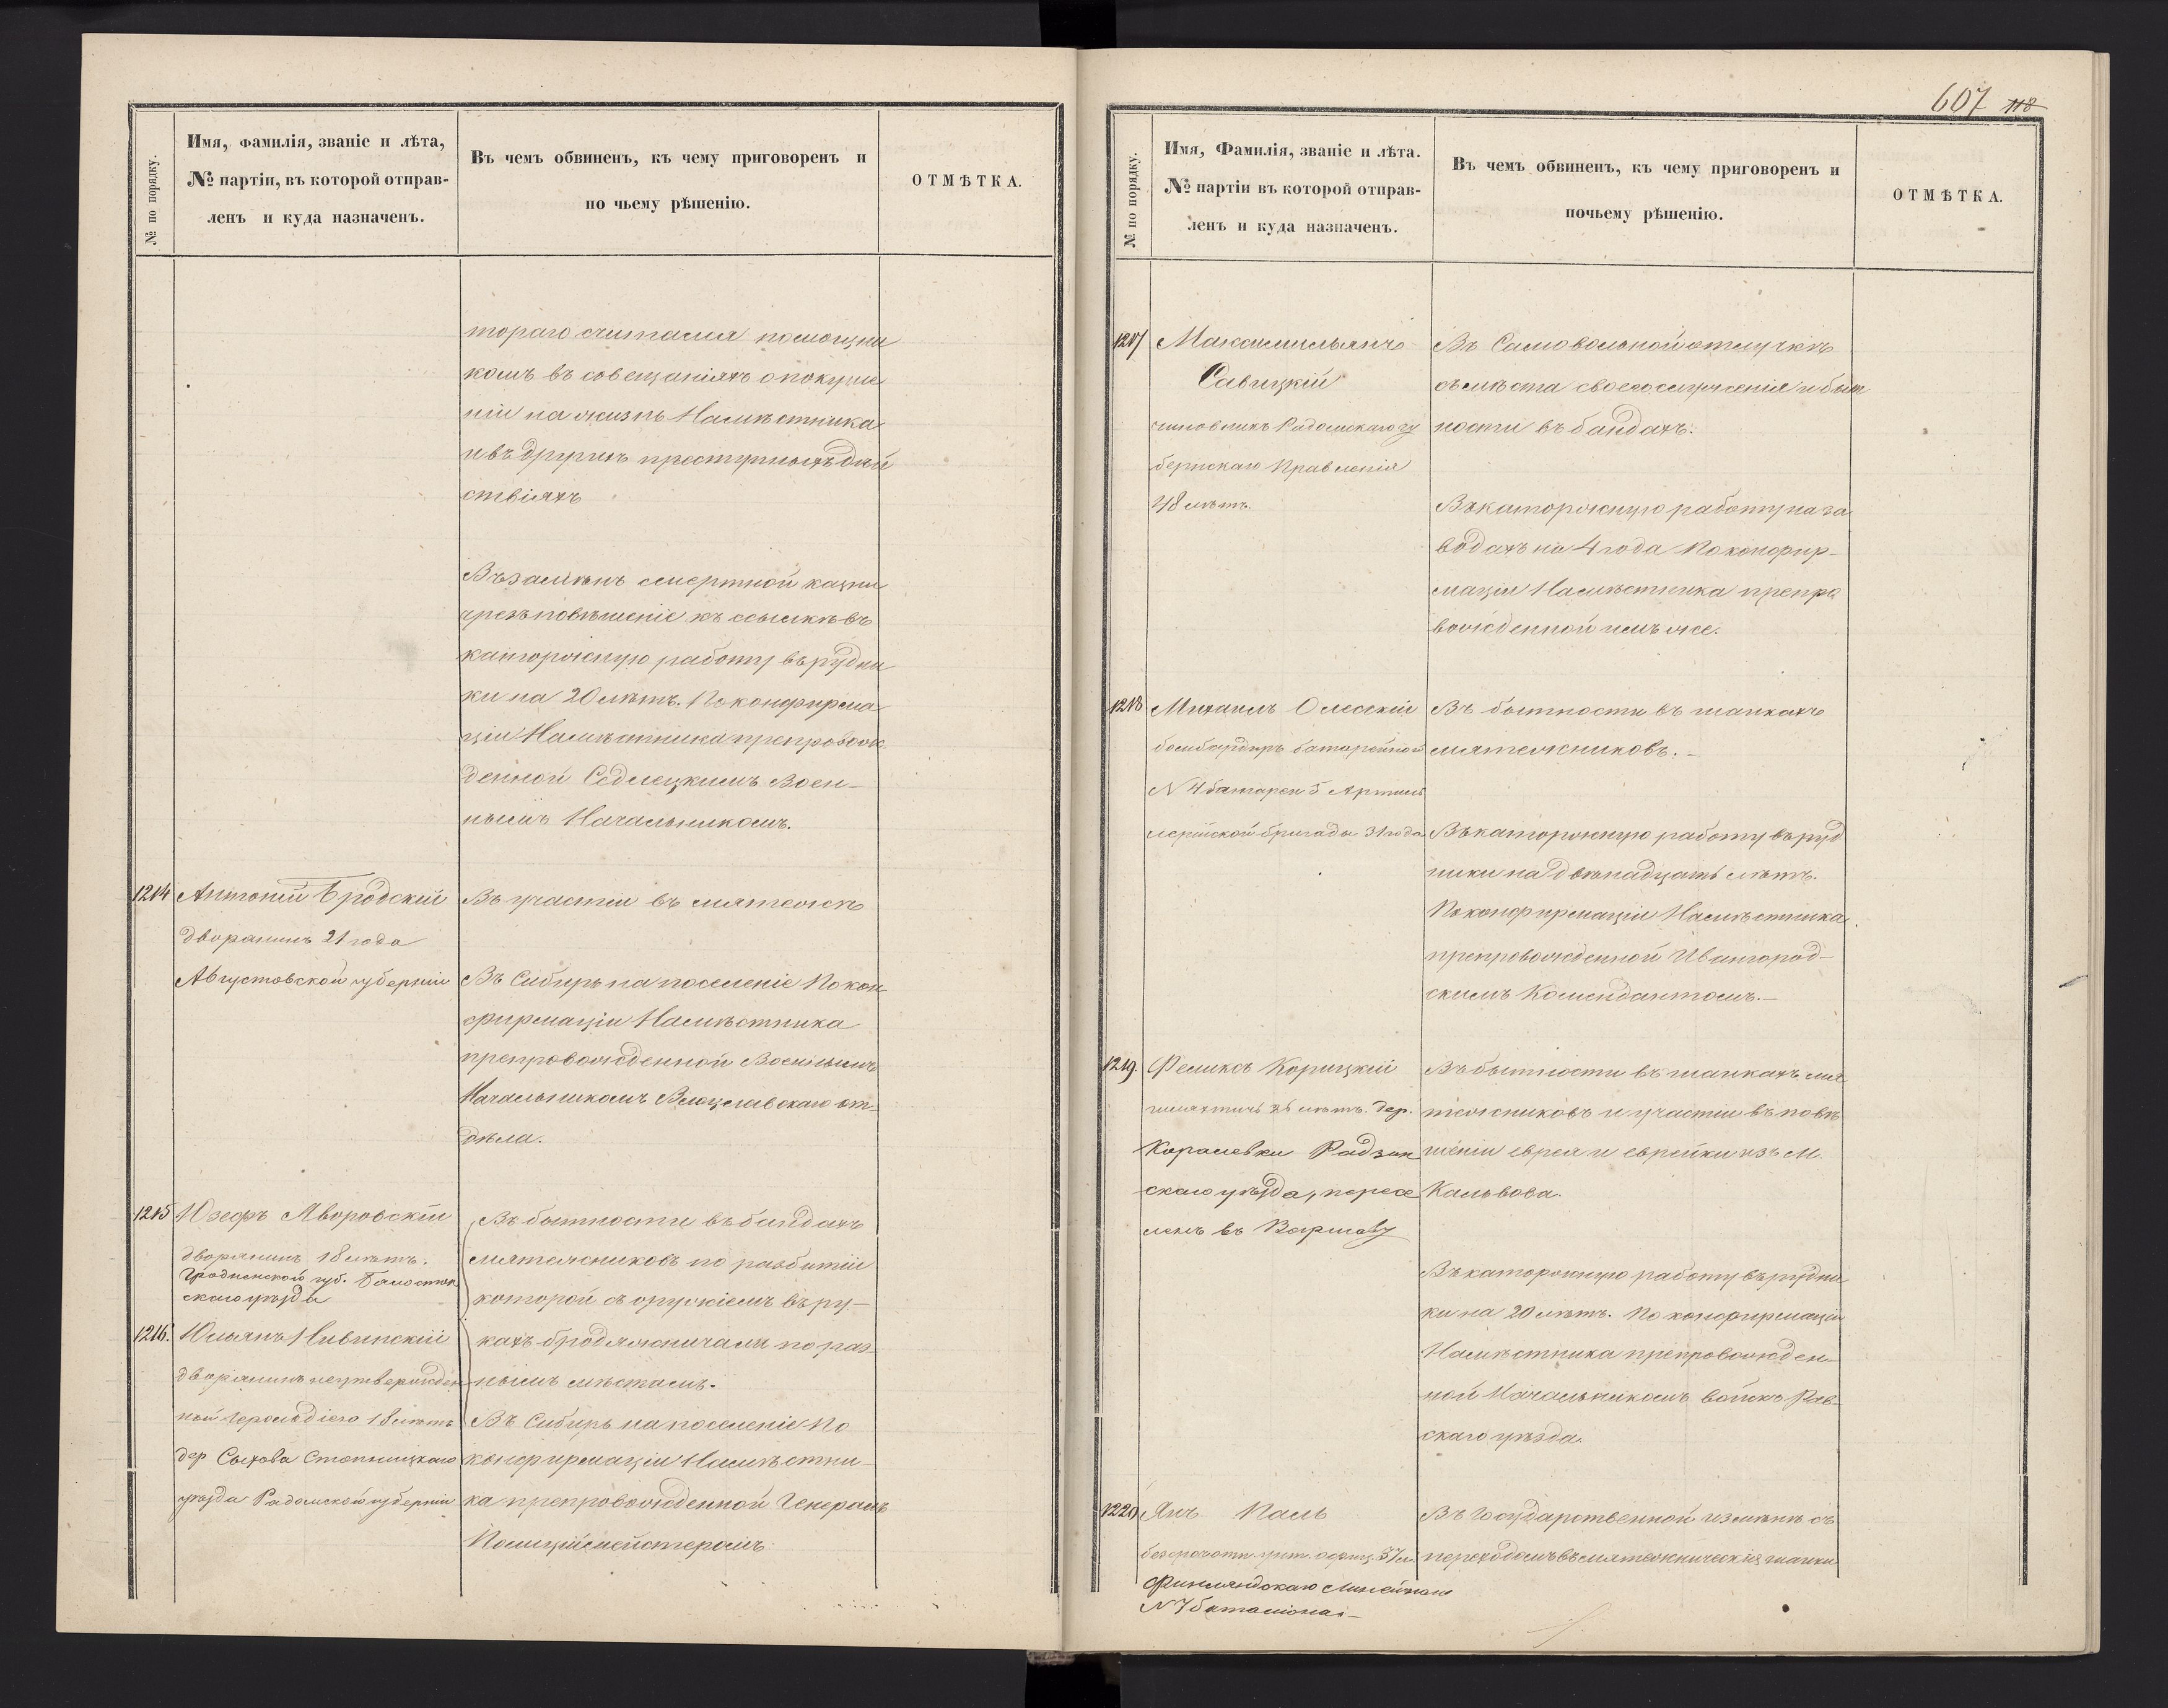 № по порядку.
Имя, фамилія, званіе и лѣта,
№ партіи, въ которой отправ-
ленъ и куда назначенъ.
Въ чемъ обвиненъ, къ чему приговоренъ и
по чьему рѣшенію.
ОТМѢТКА.
тораго считался помощни
комъ въ совещаніяхъ о покуше
ніи на жизнь Намѣстника
и въ другихъ преступныхъ дѣй
ствіяхъ
Възамѣнъ смертной казни
чрезъ повѣшеніе къ ссылкѣ въ
каторжную работу въ рудни
ки на 20 лѣтъ. По конфирма
ціи Намѣстника препровож
денной Седлецкимъ Воен-
нымъ Начальникомъ.
1214 Антоній Бродскій
дворанинъ 21 года
Августовской губерніи
Въ участіи въ мятежѣ
Въ Сибирь на поселеніе По кон
фирмаціи Намѣстника
препровожденной Военнымъ
Начальникомъ Влоцлавскаго от-
дѣла.
1215 Юзефъ Яворовскій
дворянинъ 18 лѣтъ.
Гродненской губ. Бялосток
скаго уѣзда
1216. Юльянъ Нивинскій
дворянинъ неутвержден
ный Герольдіею 18 лѣтъ
дер Сыхова Стопницкаго
уѣзда Радомской губерніи
Въ бытности въ бандахъ
мятежниковъ по разбитіи
которой съ оружіемъ въ ру-
кахъ бродяжничали по раз-
нымъ мѣстамъ.
Въ Сибирь на поселеніе По
конфирмаціи Намѣстни-
ка препровожденной Генералъ
Полиціймейстеромъ
607 118
№ по порядку.
Имя, Фамилія, званіе и лѣта.
№ партіи въ которой отправ-
ленъ и куда назначенъ.
Въ чемъ обвиненъ, къ чему приговоренъ и
почьему рѣшенію.
ОТМѢТКА.
1217 Максимильянъ
Савицкій
чиновникъ Радомскаго гу
бернскаго Правленія
48 лѣтъ.
Въ Самовольной отлучкѣ
съ мѣста своего служенія и быт
ности въ бандахъ.
Въ каторжную работу на за
водахъ на 4 года По конфир-
маціи Намѣстника препро
вожденной имъ же.
1218 Михаилъ Олесскій
бомбардиръ батарейной
N 4 батареи 5 Артил
лерійской бригады 31 года
Въ бытности въ шайкахъ
мятежниковъ.-
Въ каторжную работу въ руд
ники на двѣнадцать лѣтъ.
По конфирмаціи Намѣстника
препровожденной Ивангород-
скимъ Комендантомъ.-
1219. Феликсъ Корицкій
шляхтичъ 26 лѣтъ. дер.
Каролевки Радзин
скаго уѣзда, пересе
ленъ въ Варшаву
Въ бытности въ шайкахъ мя
тежниковъ и участіи въ повѣ
шеніи еврея и еврейки изъ М.
Кальвова.
Въ каторжную работу въ рудни
ки на 20 лѣтъ. По конфирмаціи
Намѣстника препровожден-
ной Начальникомъ войскъ Рав-
скаго уѣзда.
1220 Янъ Паль
37 л.
Финляндскаго Линейнаго
N 7 баталіона-
Въ Государственной измѣнѣ съ
переходомъ въ мятежническія шайки